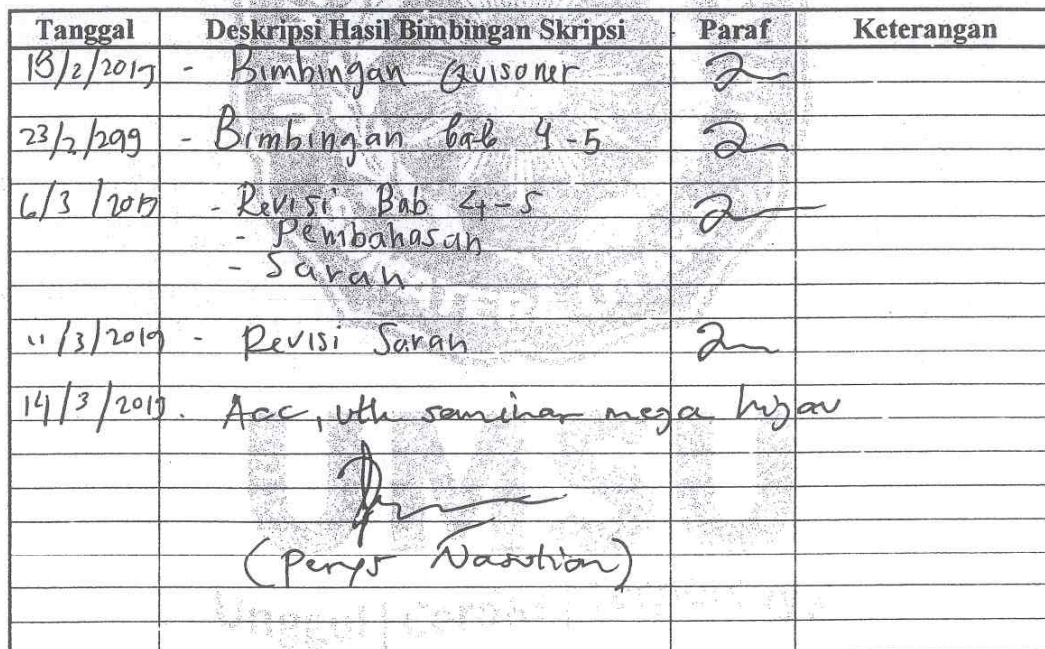 Tanggal Deskripsi Hasil Bimbingan Skripsi Paraf Keterangan
- Bimbingan Quisoner
23/2/ - Bimbingan bab 4-5
6/3/2019 - Revisi Bab 4-5
- Pembahasan
- Saran
11/3/2019 - Revisi Saran
14/3/2019. Acc, utk seminar meja hijau
(Nasution)
UMSU
Unggul | Cerdas